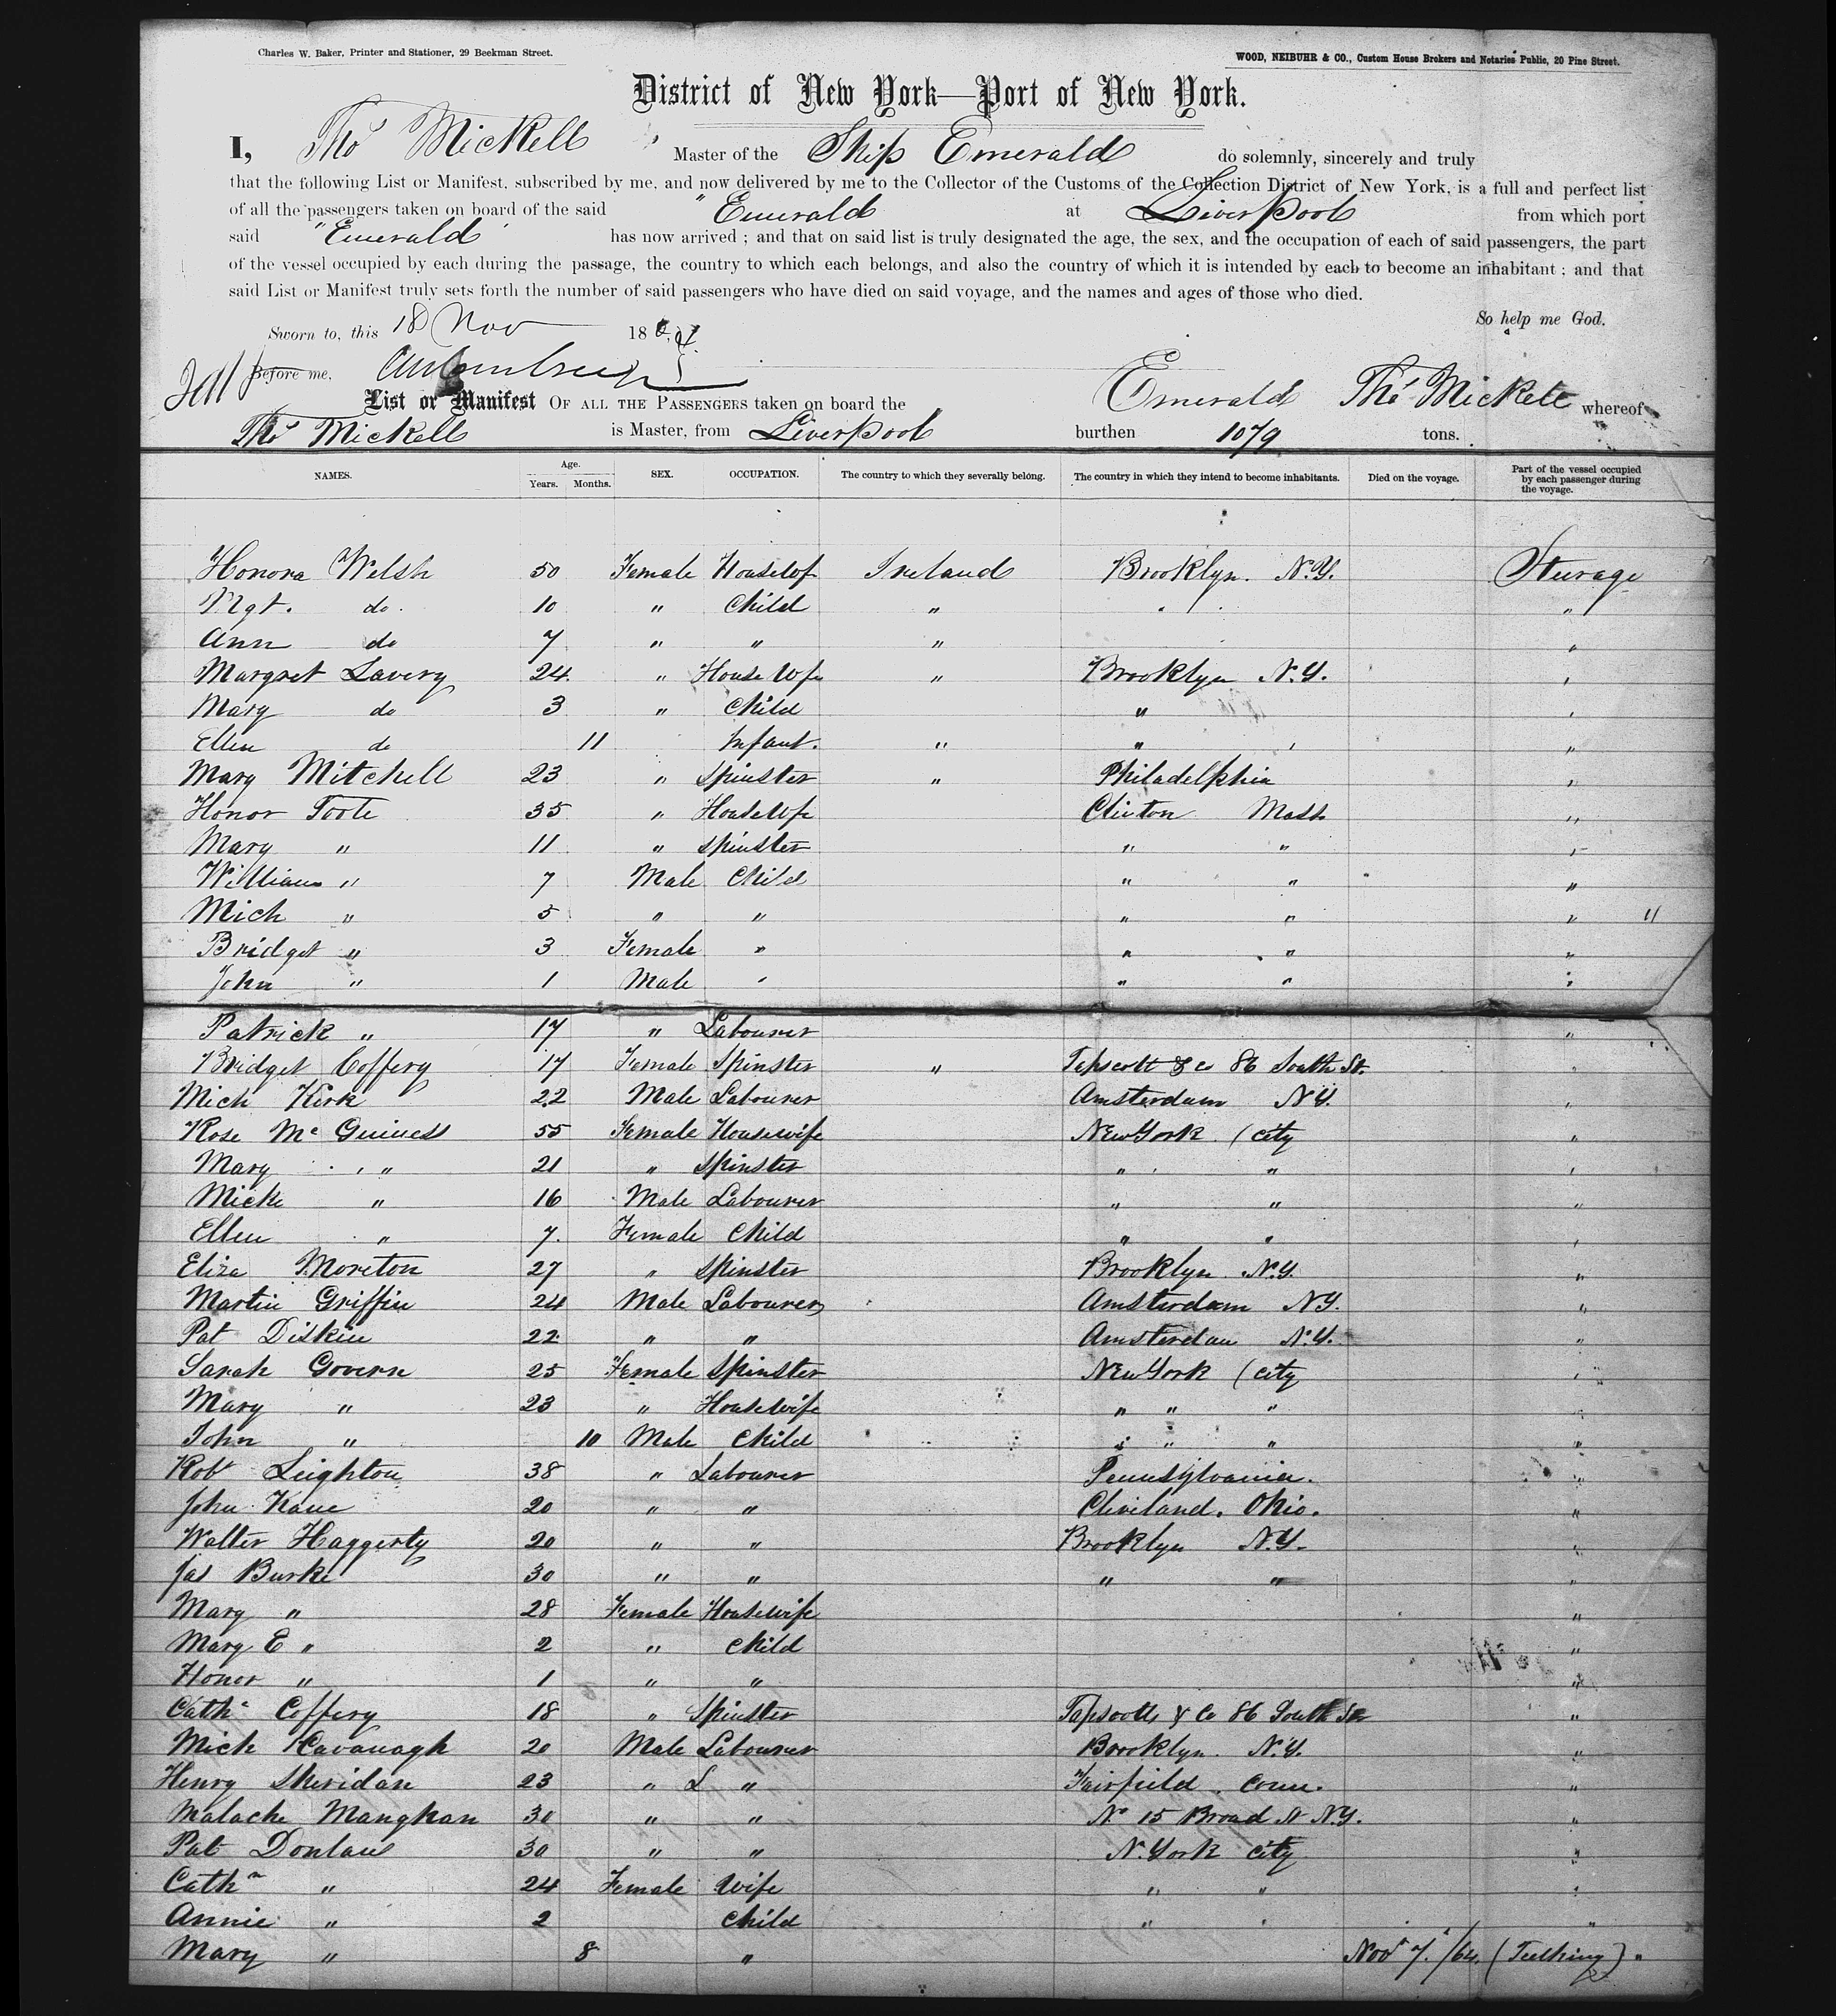 Charles W. Baker, Printer and Stationer, 29 Beekman Street.
WOOD, NEIBUHR & CO., Custom House Brokers and Notaries Public, 20 Pine Street.
District of New York—Port of New York.
I, Thos Mickell Master of the Ship Emerald do solemnly, sincerely and truly
that the following List or Manifest, subscribed by me, and now delivered by me to the Collector of the Customs of the Collection District of New York, is a full and perfect list
of all the passengers taken on board of the said " Emerald at Liverpool from which port
said "Emerald" has now arrived ; and that on said list is truly designated the age, the sex, and the occupation of each of said passengers, the part
of the vessel occupied by each during the passage, the country to which each belongs, and also the country of which it is intended by each to become an inhabitant ; and that
said List or Manifest truly sets forth the number of said passengers who have died on said voyage, and the names and ages of those who died.
So help me God.
Sworn to, this 18 Nov 186
Before me,
List or Manifest OF ALL THE PASSENGERS taken on board the Emerald Thos Mickell whereof
Thos Mickell is Master, from Liverpool burthen 1079 tons.
NAMES. Age. Years. Months. SEX. OCCUPATION. The country to which they severally belong. The country in which they intend to become inhabitants. Died on the voyage. Part of the vessel occupied by each passenger during the voyage.
Honora Welsh 50 Female Housewf Ireland Brooklyn. N.Y. Sturage
Mgt. do. 10 " Child " "
Ann do 7 " " " "
Margret Lavery 24 " House Wfe " Brooklyn N.Y. "
Mary do 3 " Child " "
Ellen do 11 Infant. " " "
Mary Mitchell 23 " Spinster " Philadelphia "
Honor Toole 35 " Housewfe Clinton Mass "
Mary " 11 " Spinster " " "
William " 7 Male Child " " "
Mich " 5 " " " " " 11
Bridget " 3 Female " " " "
John " 1 Male " " " "
Patrick " 17 " Labourer "
Bridget Coffery 17 Female Spinster " Tapscott & Co 86 South St. "
Mich Kirk 22 Male Labourer Amsterdam N.Y. "
Rose Mc Guiness 55 Female Housewife New York (City "
Mary " 21 " Spinster " " "
Micke " 16 Male Labourer " " "
Ellen " 7 Female Child " " "
Eliza Moreton 27 " Spinster Brooklyn N.Y. "
Martin Griffin 24 Male Labourer Amsterdam NY. "
Pat Diskin 22 " " Amsterdam N.Y. "
Sarah Govern 25 Female Spinster New York (City "
Mary " 23 " Housewife " " " "
John " 10 Male Child " " " "
Robt Leighton 38 " Labourer Pennsylvania. "
John Kane 20 " " Cleveland. Ohio. "
Walter Haggerty 20 " " Brooklyn N.Y. "
Jas Burke 30 " " " " "
Mary " 28 Female Housewife "
Mary E " 2 " Child "
Honor " 1 " " "
Cathe Coffery 18 " Spinster Tapscotts & Co 86 South St "
Mick Kavanagh 20 Male Labourer Brooklyn. N.Y. "
Henry Sheridan 23 " L " Fairfield. Conn. "
Malache Manghan 30 " " No 15 Broad St N.Y. "
Pat Donlan 30 " " N. York City "
Cathn " 24 Female Wife " " "
Annie " 2 Child " " "
Mary " 8 " Novr 7. /64. (Teething) "